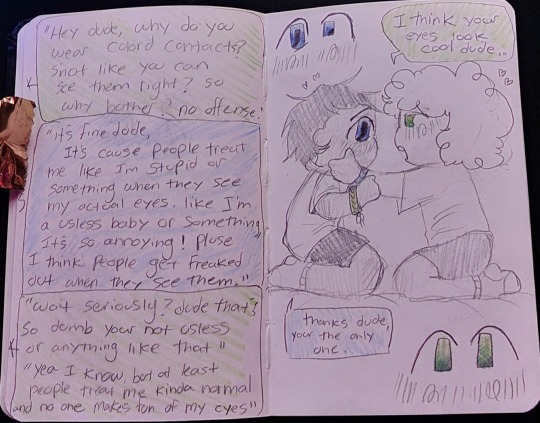 "Hey dude, why do you
wear colord contacts?
snot like you can
see them right? so
why bother? no offense."
"it's fine dude,
It's cause people treat
me like I'm stupid or
something when they see
my actual eyes. like I'm
a usless baby or something
It's so annoying! Pluse
I think people get freaked
out when they see them."
"wait seriously? dude that's
so dumb your not usless
or anything like that"
"yea I know, but at least
people treat me kinda normal
and no one makes fun of my eyes"
I think your
eyes look
cool dude..
thanks dude,
your the only
one.